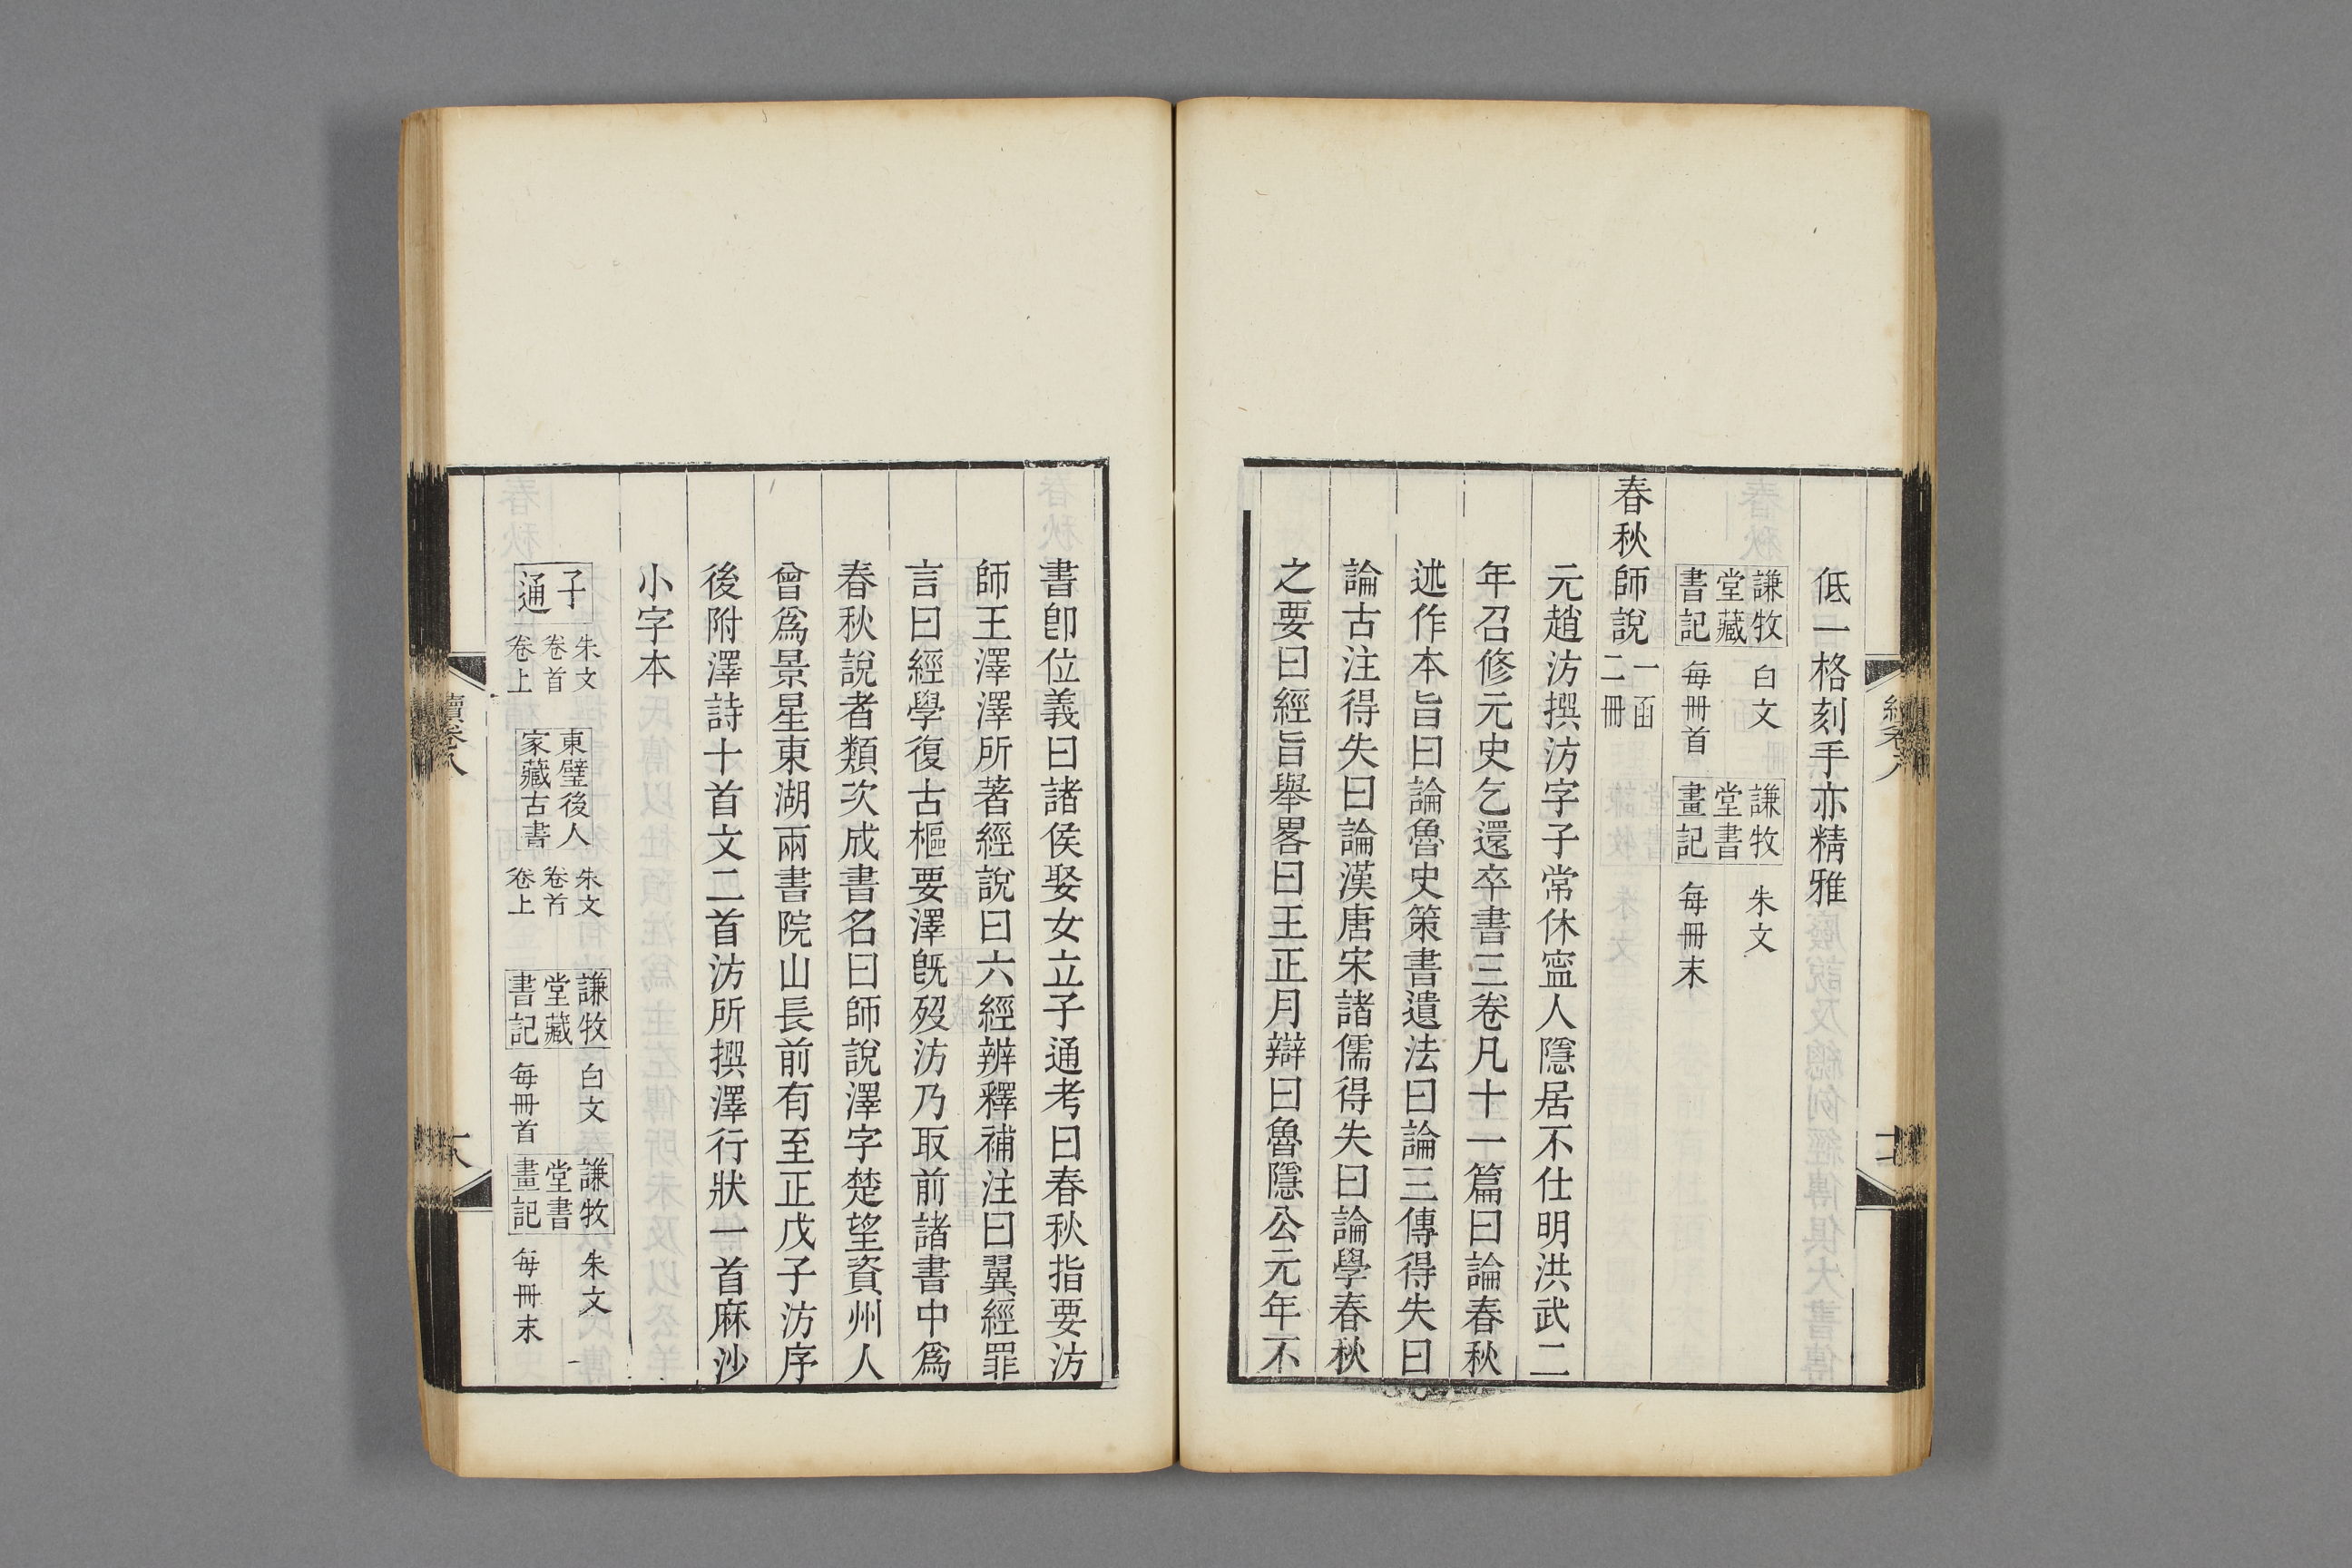 低一格刻手亦精雅
謙牧堂藏書記 白文每冊首 謙牧堂書畫記 朱文每冊末
春秋師說 一函二冊
元趙汸撰汸字子常休寍人隱居不仕明洪武二
年召修元史乞還卒書三卷凡十一篇曰論春秋
述作本旨曰論魯史策書遺法曰論三傳得失曰
論古注得失曰論漢唐宋諸儒得失曰論學春秋
之要曰經旨舉畧曰王正月辯曰魯隱公元年不
書卽位義曰諸侯娶女立子通考曰春秋指要汸
師王澤澤所著經說曰六經辨釋補注曰翼經罪
言曰經學復古樞要澤旣歿汸乃取前諸書中爲
春秋說者類次成書名曰師說澤字楚望資州人
曾爲景星東湖兩書院山長前有至正戊子汸序
後附澤詩十首文二首汸所撰澤行狀一首麻沙
小字本
子通 朱文卷首卷上 東壁後人家藏古書 朱文卷首卷上 謙牧堂藏書記 白文每冊首 謙牧堂書畫記 朱文每冊末
續卷八
十八